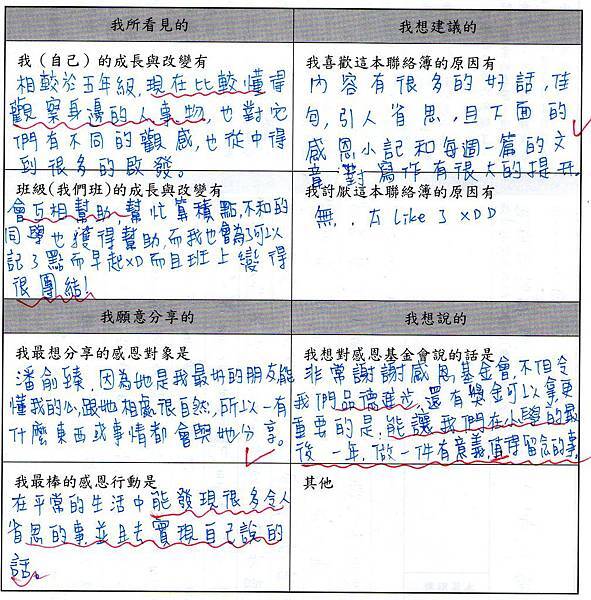 我所看見的
我（自己）的成長與改變有
相較於五年級,現在比較懂得
觀察身邊的人事物,也對它
們有不同的觀感,也從中得
到很多的啟發。
班級(我們班)的成長與改變有
會互相幫助,幫忙算積點,不和的
同學也獲得幫助,而我也會為了可以
記了點而早起XD而且班上變得
很團結!
我想建議的
我喜歡這本聯絡簿的原因有
內容有很多的好話,佳
句,引人省思,且下面的
感恩小記和每週一篇的文
章對寫作有很大的提升.
我討厭這本聯絡簿的原因有
無.太Like了XDD
我願意分享的
我最想分享的感恩對象是
潘俞臻.因為她是我最好的朋友能
懂我的心,跟她相處很自然,所以一有
什麼東西或事情都會與她分享。
我最棒的感恩行動是
在平常的生活中能發現很多令人
省思的事.並且去實現自己說的
話。
我想說的
我想對感恩基金會說的話是
非常謝謝感恩基金會.不但令
我們品德進步,還有獎金可以拿更
重要的是.能讓我們在小學的最
後一年,做一件有意義,值得留念的事.
其他